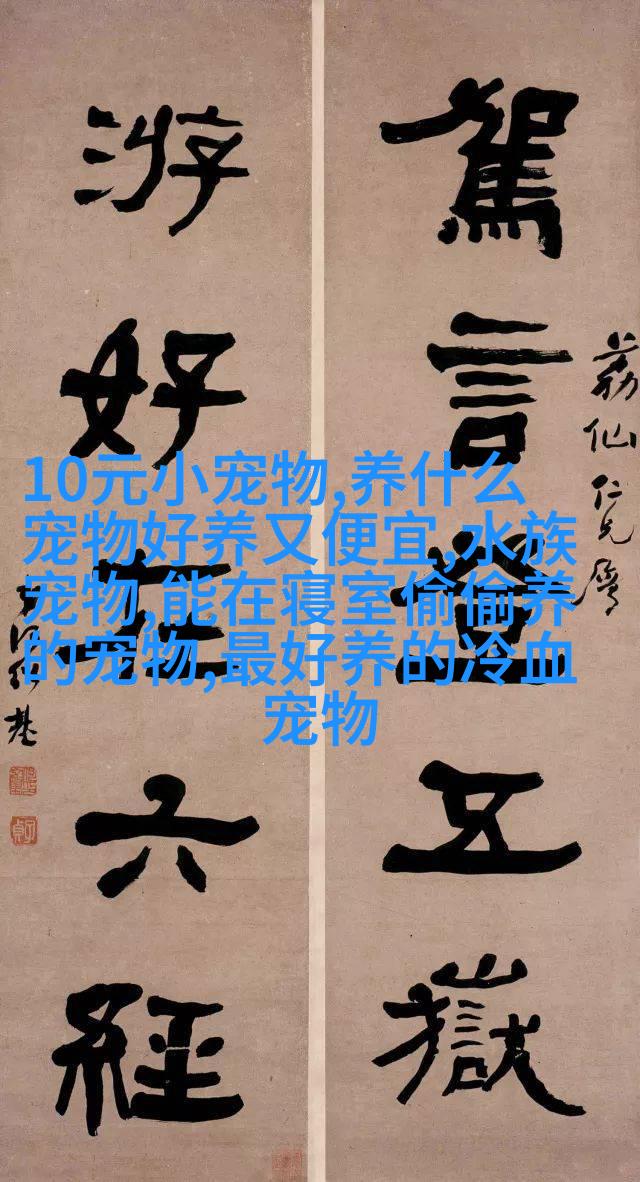 10元小宠物,养什么
宠物好养又便宜,水族
宠物,能在寝室偷偷养
的宠物,最好养的冷血
宠物
荔仙仁兄屬
駕言登五嶽
游好在六經
何紹基
子貞